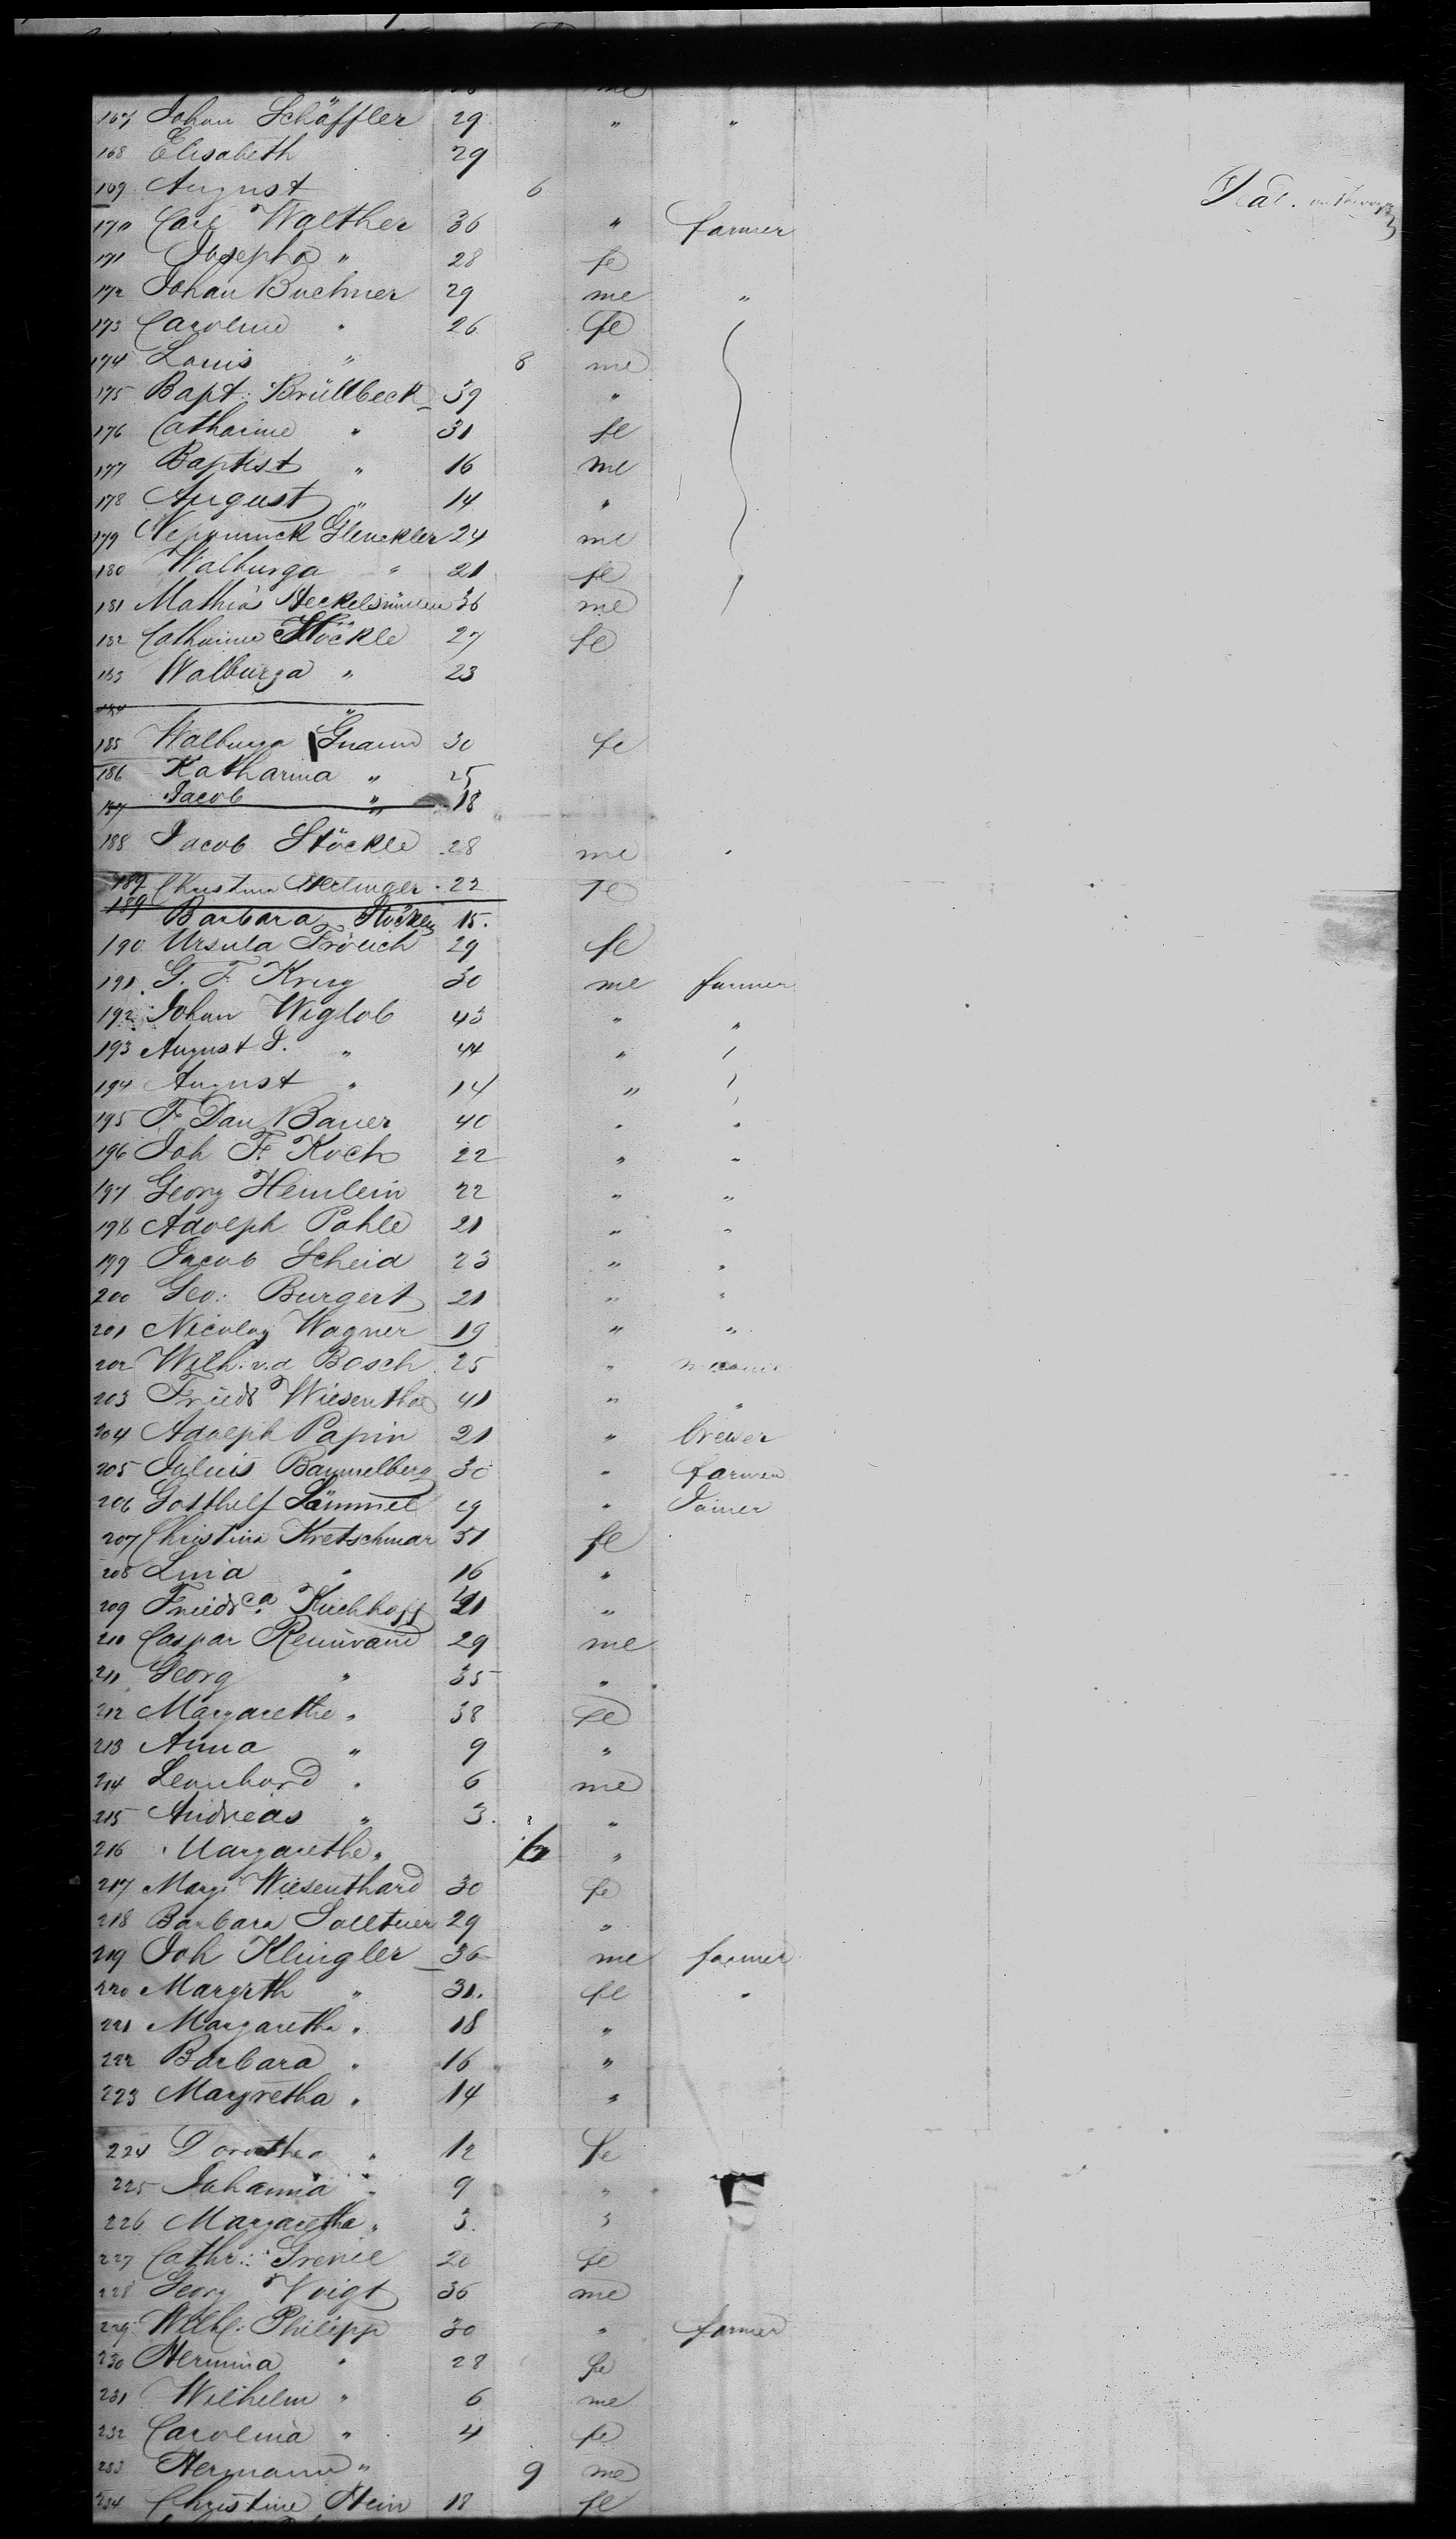 167 Johan Schäffler 29 " "
168 Elisabeth 29
169 August 6 Dead. on the voyage
170 Carl Walther 36 " farmer
171 Josepha " 28 fe
172 Johan Buchner 29 me "
173 Caroline " 26 fe
174 Louis " 8 me
175 Bapt: Brüllbeck 39 "
176 Catharine " 31 fe
177 Baptist " 16 me
178 August " 14 "
179 Nepomuck Glenckler 24 me
180 Walburga " 21 fe
181 Mathias 36 me
182 Catharine Stöckle 27 fe
183 Walburga " 23
184 "
185 Walburga Gnann 30 fe
186 Katharina " 25
187 Jacob " 18
188 Jacob Stöckle 28 me "
189 Christina Herlinger 22 fe
189 Barbara 15.
190 Ursula Frölich 29 fe
191 G. F. Krug 30 me farmer
192 Johan Wiglob 43 " "
193 August J. " 44 "
194 August " 14 "
195 F. Dan Bauer 40 " "
196 Joh F. Koch 22 " "
197 Georg Hemlein 22 " "
198 Adolph Pahle 21 " "
199 Jacob Scheid 23 " "
200 Geo: Burgert 21 " "
201 Nicolay Wagner 19 " "
202 Wilh. v.d Bosch 25 "
203 Friedr Wiesenthal 41 " "
204 Adolph Papin 21 " brewer
205 Julius Bammelberg 30 " farmer
206 Gotthelf Lämmel 19 " Joiner
207 Christina Kretschmar 51 fe
208 Lina " 16 "
209 Friedrca. Kirchhoff 21 "
210 Caspar 29 me
211 Georg " 35 "
212 Margarethe " 38 fe
213 Anna " 9 "
214 Leonhard " 6 me
215 Andreas " 3. "
216 Margarethe " 6 "
217 Marg: Wiesenthard 30 fe
218 Barbara 29 "
219 Joh Klingler 36 me farmer
220 Margrth " 31. fe "
221 Margaretha " 18 "
222 Barbara " 16 "
223 Margretha " 14 "
224 Dorothea " 12 fe
225 Johanna " 9 "
226 Margaretha " 3. "
227 Cathr: 20 fe
228 Georg Voigt 36 me
229 Wilhl: Philipp 30 " farmer
230 Hermina " 28 fe
231 Wilhelm " 6 me
232 Carolina " 4 fe
233 Hermann " 9 me
234 Christine Stein 18 fe